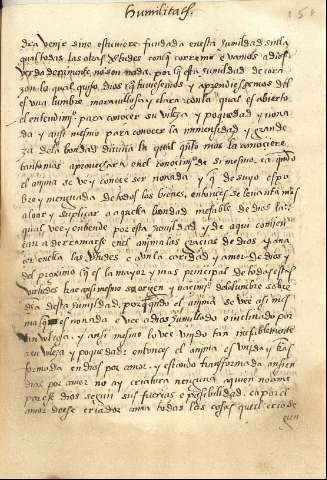 humilitas.
dra venir sino estuviere fundada en esta humildad sin la
qual todas las otras virtudes con que corremos e vamos a dios
verdaderamente no son nada, por que esta humildad de cora
zon la qual quiso dios que tuviesemos y aprendiesemos del
es una lumbre maravillosa y clara con la qual es abierto
el entendimi° para conocer su vileza y poquedad y nona
da y ansi mesmo para conocer la inmensidad y grande
za de la bondad divina la qual quanto mas la conociere
tanto mas aprovechara en el conocimi° de si mesmo. ca quando
el anima se ve y conoce ser nonada y que de suyo es po
bre y menguada de todos los bienes, entonces se levanta mas
a loar y suplicar a aquella bondad inefable de dios la
qual vee y entiende por esta humildad y de aqui comien
can a derramarse en el anima las gracias de dios y a na
cer en ella las virtudes e la caridad y amor de dios y
del proximo que es la mayor y mas principal de todas estas
virtudes trae ansi mesmo su origen y nacimi° de la lumbre sobre
dha desta humildad, porque quando el anima se vee asi mes
ma que es nonada e vee a dios humillado e inclinado por
su vileza, y ansi mesmo lo vee unido tan inefablemente
a su vileza y poquedad: entonces el anima es unida y tras
formada en dios por amor. y estando transformada ansi en
dios por amor no ay criatura ninguna a quien no ame
por ese dios segun sus fuerzas e possibilidad. ca por el
amor dese criador ama todas las cosas que el crio de